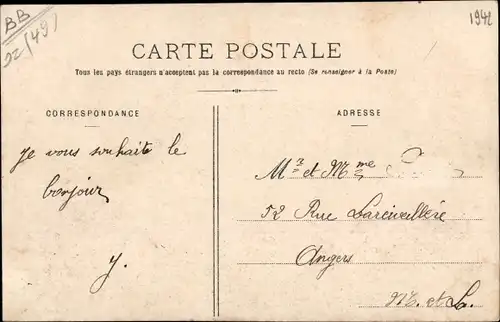 BB
92 (49)
1942
CARTE POSTALE
Tous les pays étrangers n'acceptent pas la correspondance au recto (Se renseigner à la Poste)
CORRESPONDANCE
ADRESSE
Je vous souhaite le
bonjour
y.
Mr et Mme
52 Rue Lareveillère
Angers
M. et L.